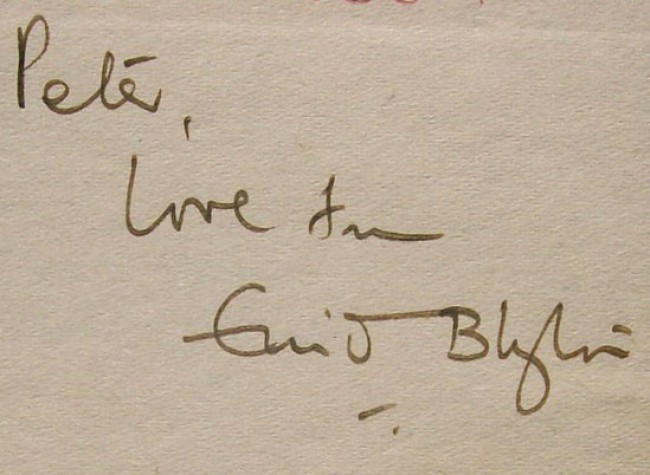 Peter,
Love from
Enid Blyton